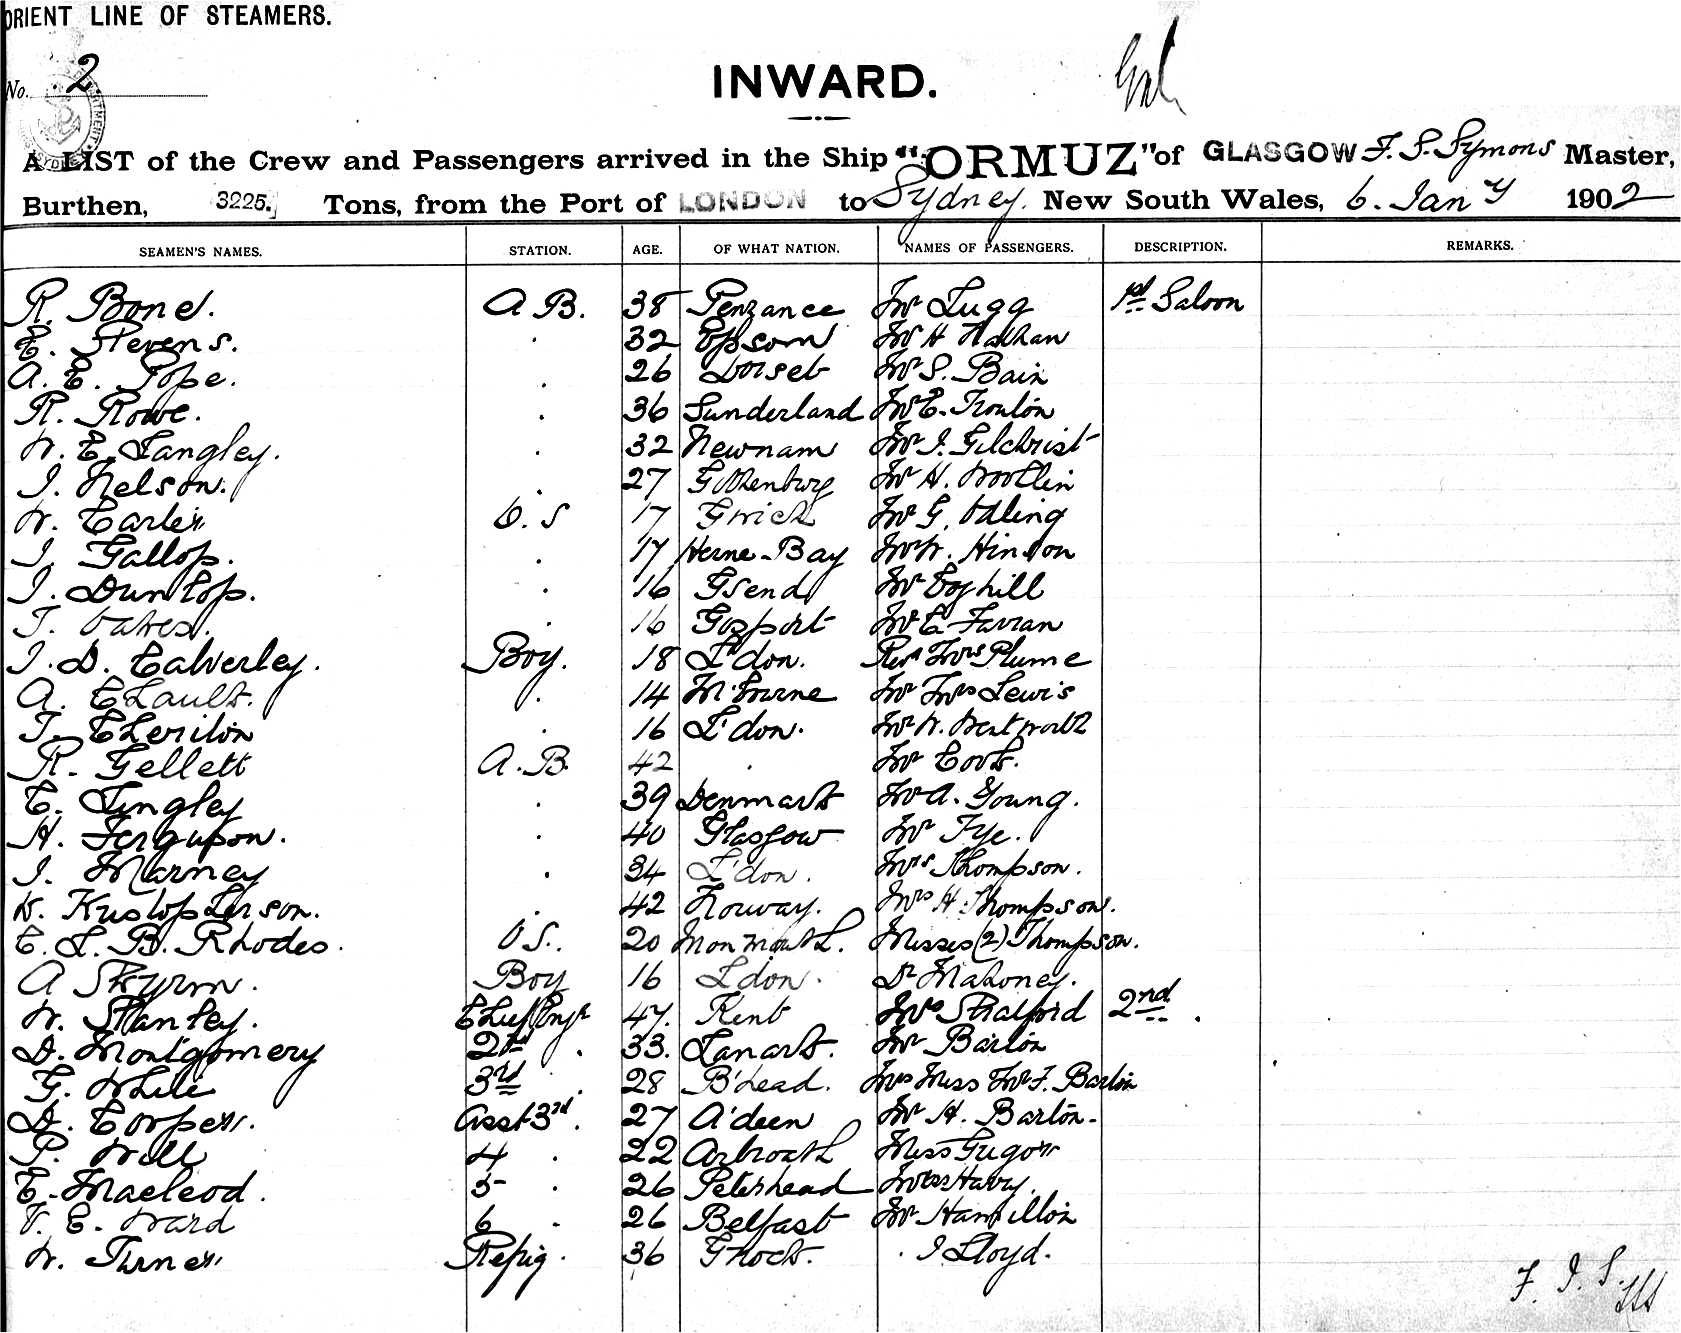 ORIENT LINE OF STEAMERS.
No. 2
INWARD.
A LIST of the Crew and Passengers arrived in the Ship "ORMUZ" of GLASGOW F. S. Symons Master,
Burthen, 3225. Tons, from the Port of LONDON to Sydney. New South Wales, 6. Jany 1902
SEAMEN'S NAMES. STATION. AGE. OF WHAT NATION. NAMES OF PASSENGERS. DESCRIPTION. REMARKS.
R. Bond. A B. 38 Penzance Mr Lugg 1st Saloon
E. Stevens. . 32 Epsom Mr H Nathan
A. E. Pope. . 26 Dorset Mr S. Bain
R. Rowe. . 36 Sunderland Mr E.
W. E. Langley. . 32 Newnam Mr J. Gilchrist
J. Nelson. . 27 Gothenburg Mr H.
W. Carter O. S 17 G'wich Mr G.
J. Gallop. . 17 Herne-Bay Mr W. Hinton
J. Dunlop. . 16 G'send Mr Coghill
T. Oakes. . 16 Gosport Mr E Farran
J. D. Calverley. Boy. 18 L'don. Revd Mrs Plume
A. Chault. . 14 M'bourne Mr Mrs Lewis
T. . 16 L'don. Mr W. Wentworth
R. Gellett A. B. 42 . Mr Cook.
C. Lingley . 39 Denmark Mr A. Young.
H. Ferguson. . 40 Glasgow Mr Tye.
J. Marney . 34 L'don. Mrs Thompson.
K. Kristopherson. . 42 Norway. Mrs H. Thompson.
C. L. B. Rhodes. O S. 20 Monmouth. Misses (2) Thompson.
A Skyrm. Boy 16 L'don. Dr Mahoney.
W. Stanley. Chief Engr 47. Kent Mrs Stratford 2nd.
D. Montgomery 2nd . 33. Lanark. Mr Barton
G. White 3rd . 28 B'head. Mrs Miss Mr F. Barton
D. Cooper. Asst 3rd. 27 A'deen Mr H. Barton.
P. Will 4 . 22 Arbroath Miss Gregor
C. Macleod. 5 . 26 Peterhead
V. E. Ward 6 . 26 Belfast Mr Hamilton
W. Turner Refrig. 36 G'nock. . J Lloyd.